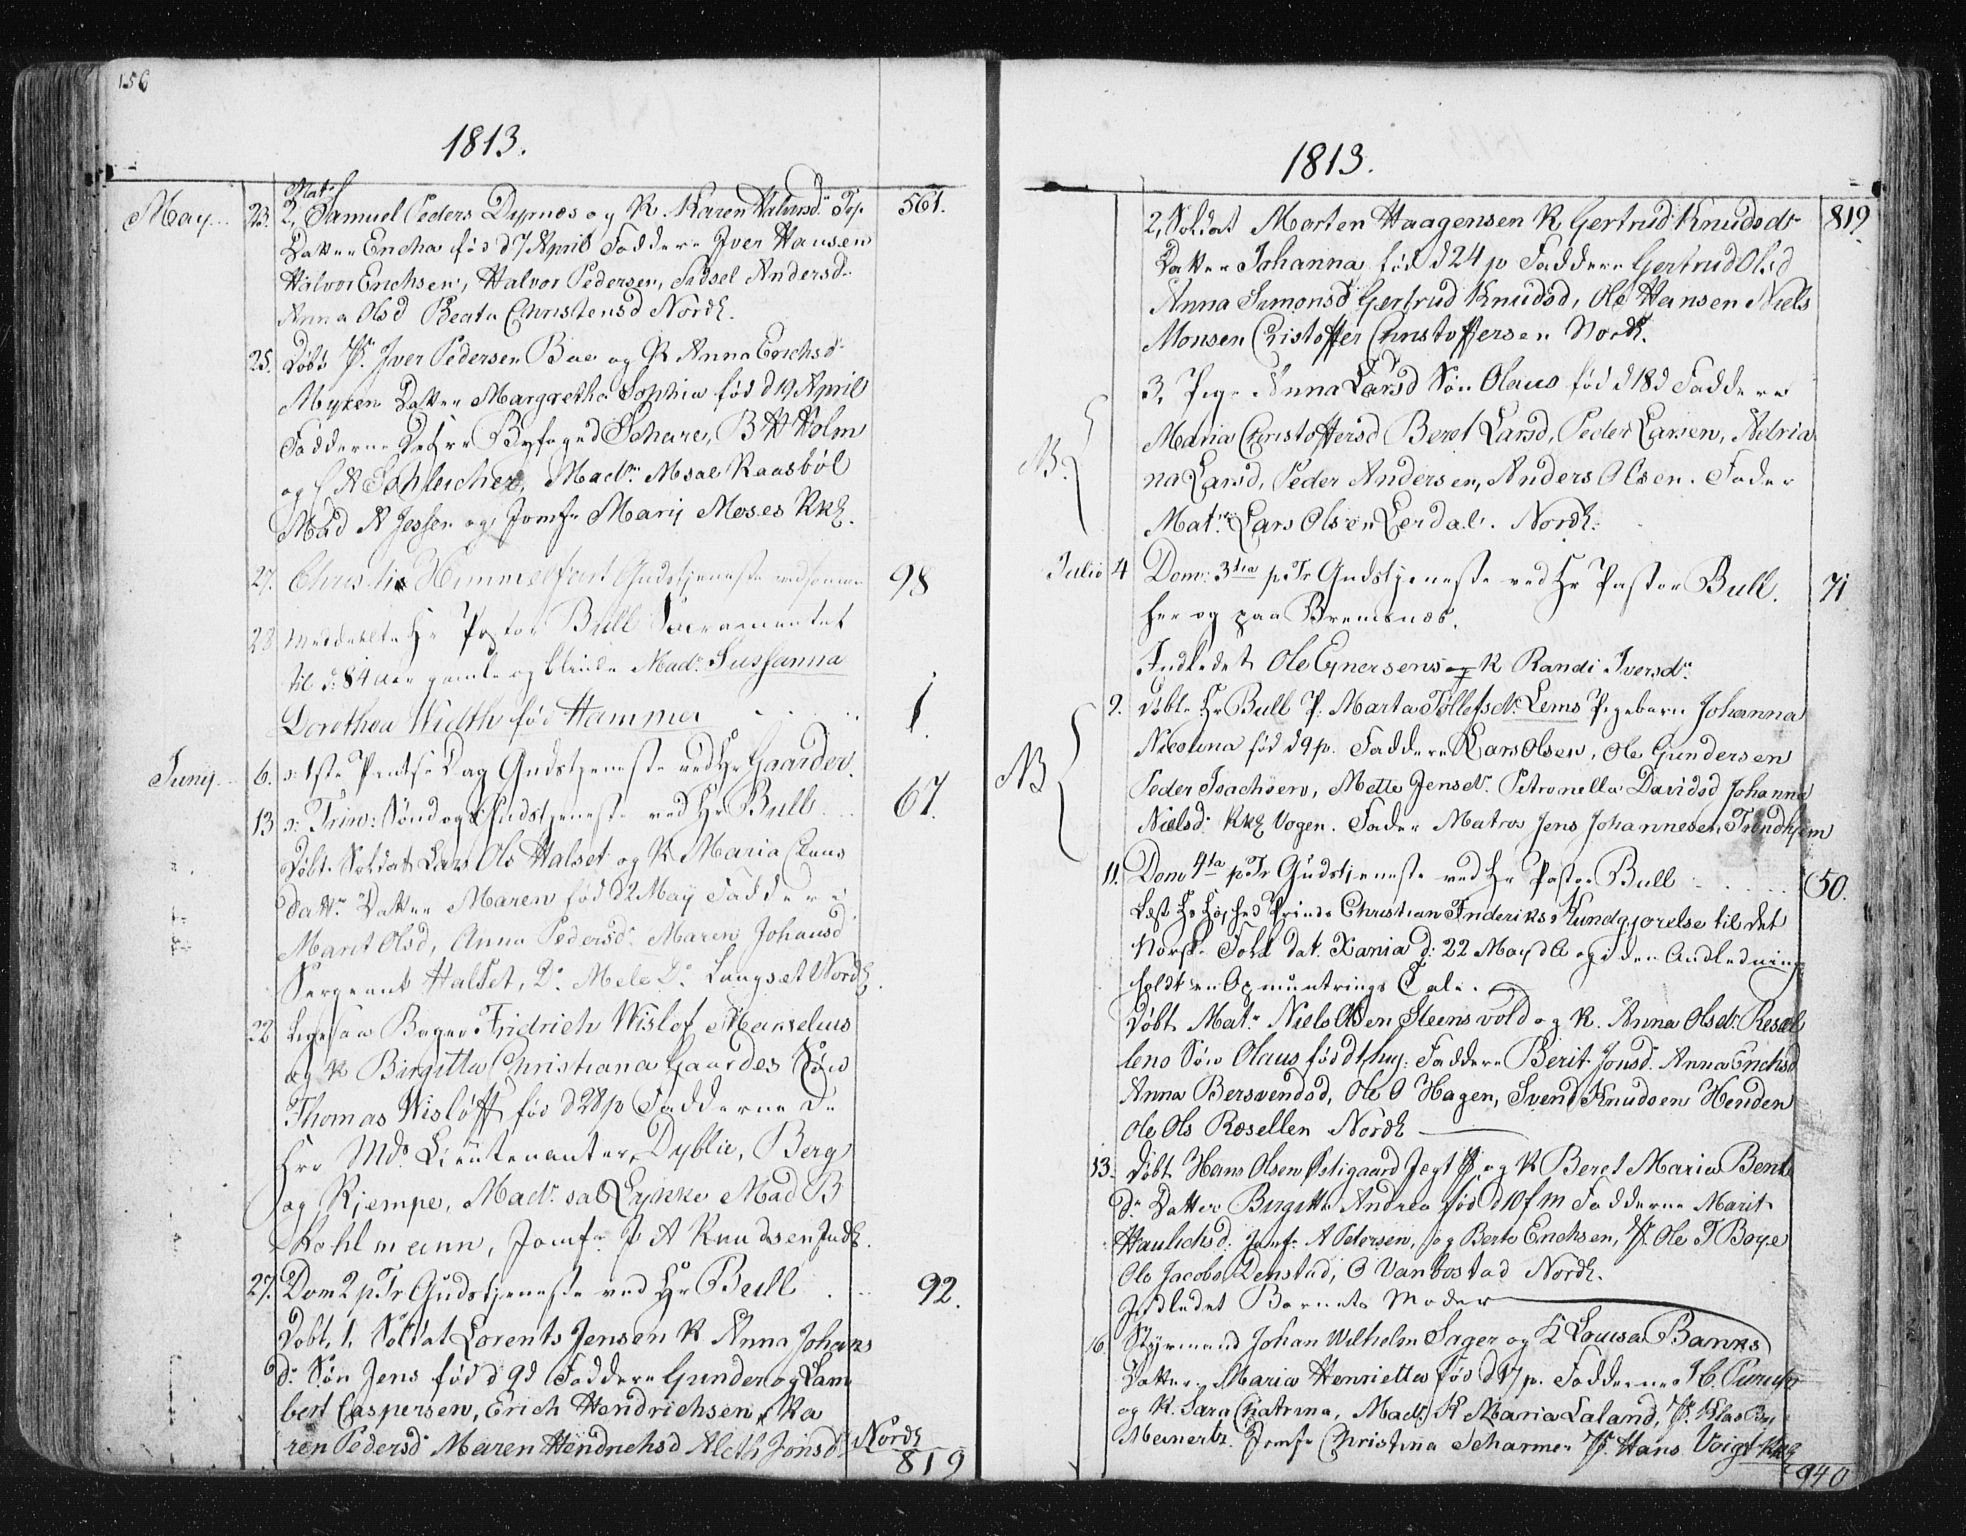 156
1813.
May. 23. Mats 2, Samuel Peders Dyrnes og K Karen Halvorsd
561.
Datter Encha fød d 7 April Faddere Iver Hansen
Halvor Erichsen, Halvor Pedersen, Sidsel Andersd
Anna Olsd Beata Christensd Nordl.
25. Døbt Iver Pedersen Boe og K Anna Erichsd
Myren Datter Margretha Sophia fød d 19 April
Fadderne De Hrr Byfoged Schare, B H Holm
og C A Schleicher, Madme Msal Raasbøl
Mad A Jessen og Jomfr Mary Moses Kkl.
27. Christi Himmelfart Gudstjeneste
98
28 meddeelte Hr Pastor Bull Sacramentet
til d: 84 aar gamle og blinde Mad: Sussanna
Dorothea Width fød Hammer
1.
Juny. 6. d: 1ste Pintse Dag Gudstjeneste ved Hr Gaarder.
13 d: Trin: Søndag Gudstjeneste ved Hr Bull
67.
Døbt Soldat Lars Ols Halset og K Maria Claus
datr Datter Maren fød d 2 May Faddere
Marit Olsd, Anna Pedersd. Maren Johansd
Sergeant Halset, Do Mele Do Langset Nordl.
22 Bager Fridrich Wisløf Marselius
og K Birgitta Christiana Gaarder Søn
Thomas Wisløff fød d 28 p Fadderne De
Hrr Md. Lieutenanter, Dyblie, Berg
og Kiempe, Madr. sal Lykke Mad B
Kohlmann, Jomfr P A Knudsen Indl.
27. Dom 2 p Tr Gudstjeneste ved Hr Bull
92.
Døbt, 1, Soldat Lorents Jensen K Anna Johans
dr Søn Jens fød d 9d Faddere Gunder og Lam
bert Caspersen, Erich Hendrichsen, Ka
ren Pedersd Maren Hendrichsd Aleth Jonsd Nordl
819
1813.
2, Soldat Morten Haagensen K Gertrud Knudsdr
819
Datter Johanna fød d 24 p Faddere Gertrud Olsd
Anna Simonsd Gertrud Knudsd, Ole Hansen Niels
Monsen Christoffer Christoffersen Nordl.
3, Pige Anna Larsd Søn Olaus fød d 18d Faddere
NB. Maria Christoffersd Beret Larsd, Peder Larsen, Adria
na Larsd, Peder Andersen, Anders Olsen. Fader
Matr: Lars Olsen Lerdal. Nordl.
Julio 4 Dom: 3tia p Tr Gudstjeneste ved Hr Pastor Bull.
71.
her og paa Bremsnes.
Indledet Ole Enersens K Randi Iversdr.
9. døbte Hr Bull P: Marta Tøllefsdr Lems Pigebarn Johanna
NB Nicolina fød d 9 p. Faddere Lars Olsen, Ole Gundersen
Peder Isachsen, Mette Jensdr. Petronella Davidsd Johanna
Nielsd. Kkl Vogen. Fader Matros Jens Johannesen, Trondhjem
11. Dom 4ta p Tr Gudstjeneste ved Hr Pastor Bull
50.
Læst Hs Højhed Prinds Christian Frideriks Kundgjørelse til det
Norske Folk dat. Xania d: 22 May d A og i den Andledning
holdt en Opmuntrings Tale.
Døbt Matr Niels Olsen Steensvold og K. Anna Olsdr. Resel
lens Søn Olaus fød Faddere Berit Jonsd. Anna Erichsd
Anna Bersvendsd, Ole O Hagen, Svend Knudsen Henden
Ole Ols Rosellen Nordl
13. Døbt Hans Olsen Østigaard Jegt og K Beret Maria Bent
dr Datter Birgitte Andrea fød d 10 f m Fadderne Marit
Haulichsd. Jomfr A Petersen, og Berte Erichsen, Ole T Boye
Ole Jacobs Denstad, O Vanbostad Nordl.
Indledet Barnets Moder
16. Styrmand Johan Wilhelm Sager og K Louisa Banks
Datter Maria Henrietta fød d 17 p. Fadderne
og K. Sara Chatrina, Madr. K Maria Laland, Klas
Meinertz. Jomfr Christina Scharmer Hans Voigt Kkl
940